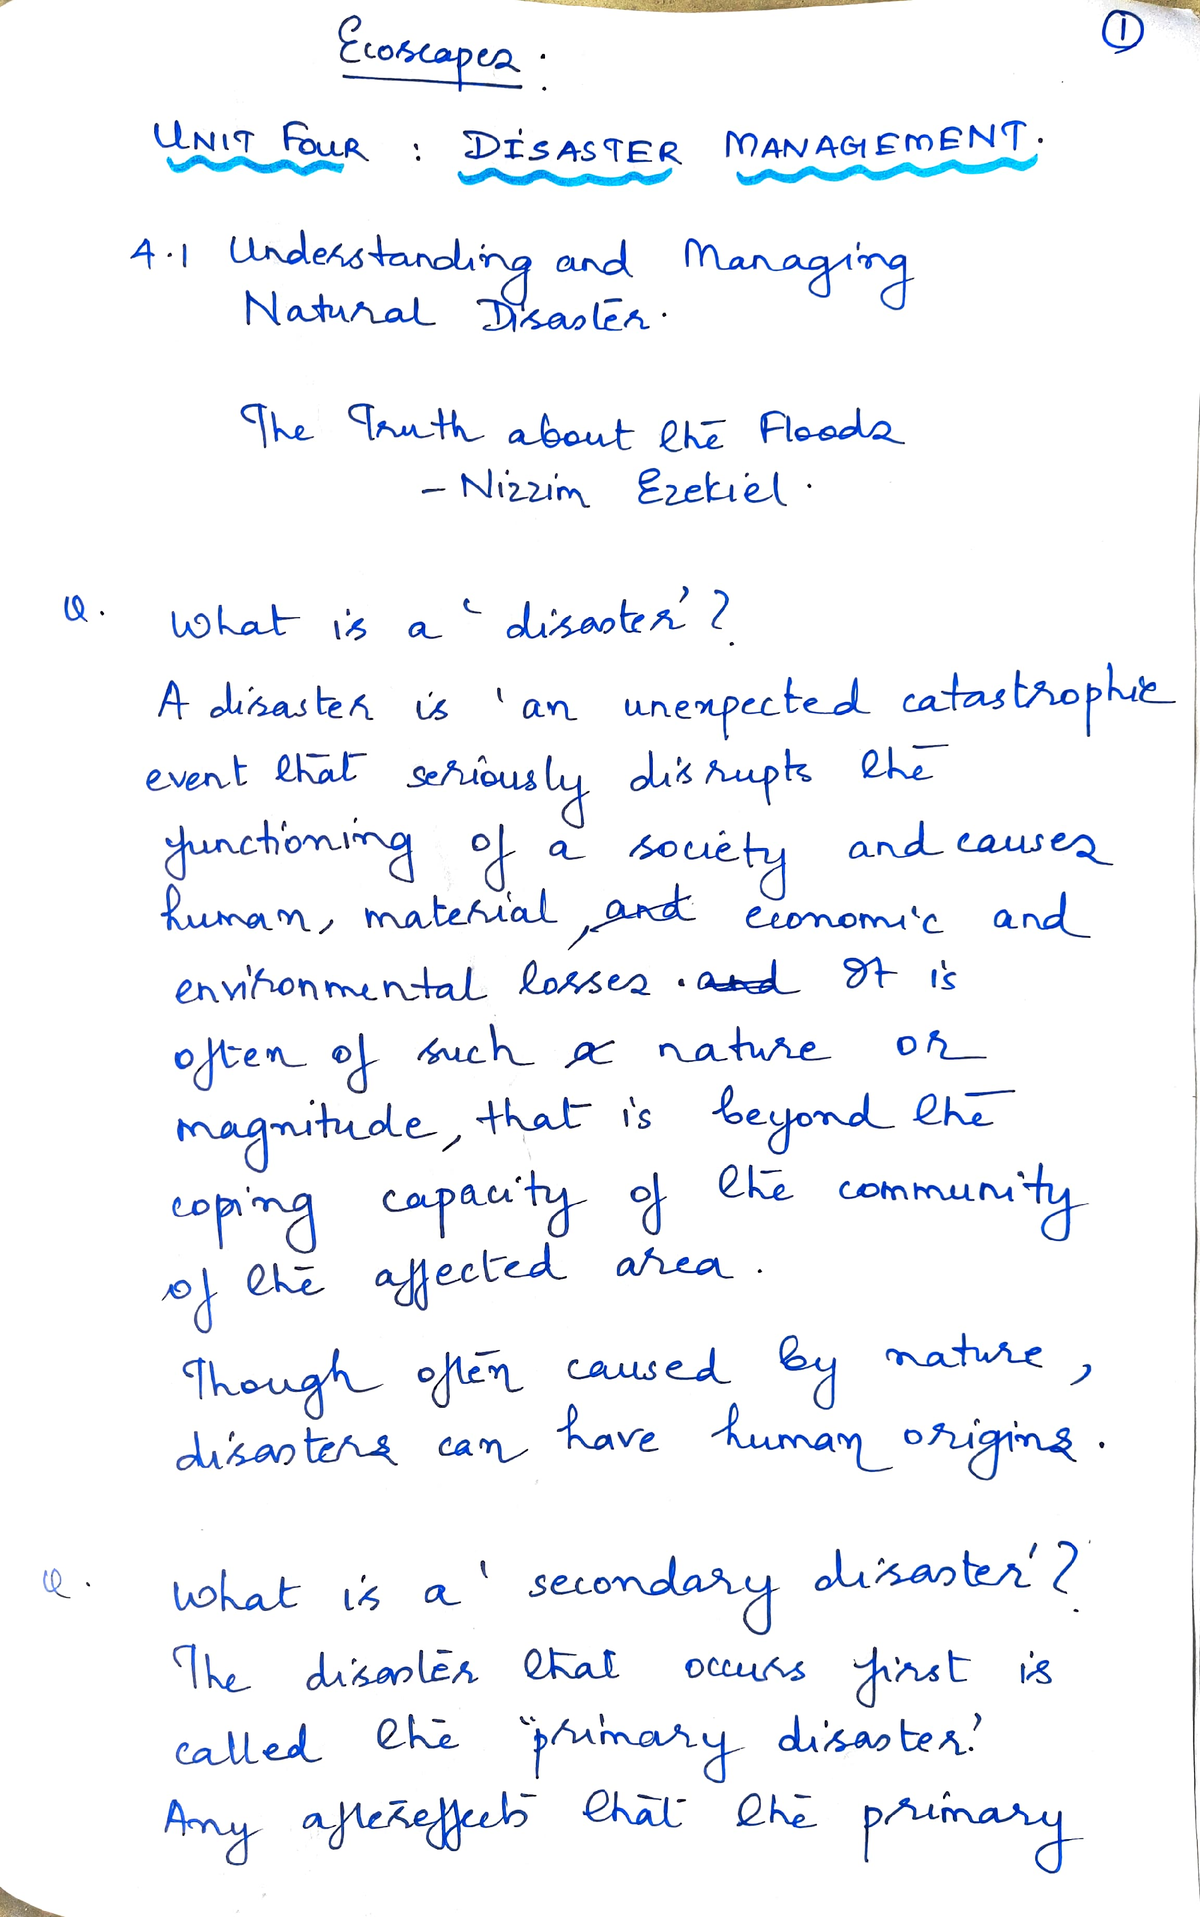 ①
Ecoscapes :
UNIT FOUR : DISASTER MANAGEMENT.
4.1 Understanding and Managing
Natural Disaster.
The Truth about the Floods
- Nizzim Ezekiel.
Q. What is a 'disaster'?
A disaster is 'an unexpected catastrophic
event that seriously disrupts the
functioning of a society and causes
human, material, and economic and
environmental losses. and It is
often of such a nature or
magnitude, that is beyond the
coping capacity of the community
of the affected area.
Though often caused by nature,
disasters can have human origins.
Q. What is a 'secondary disaster'?
The disaster that occurs first is
called the "primary disaster.'
Any aftereffects that the primary